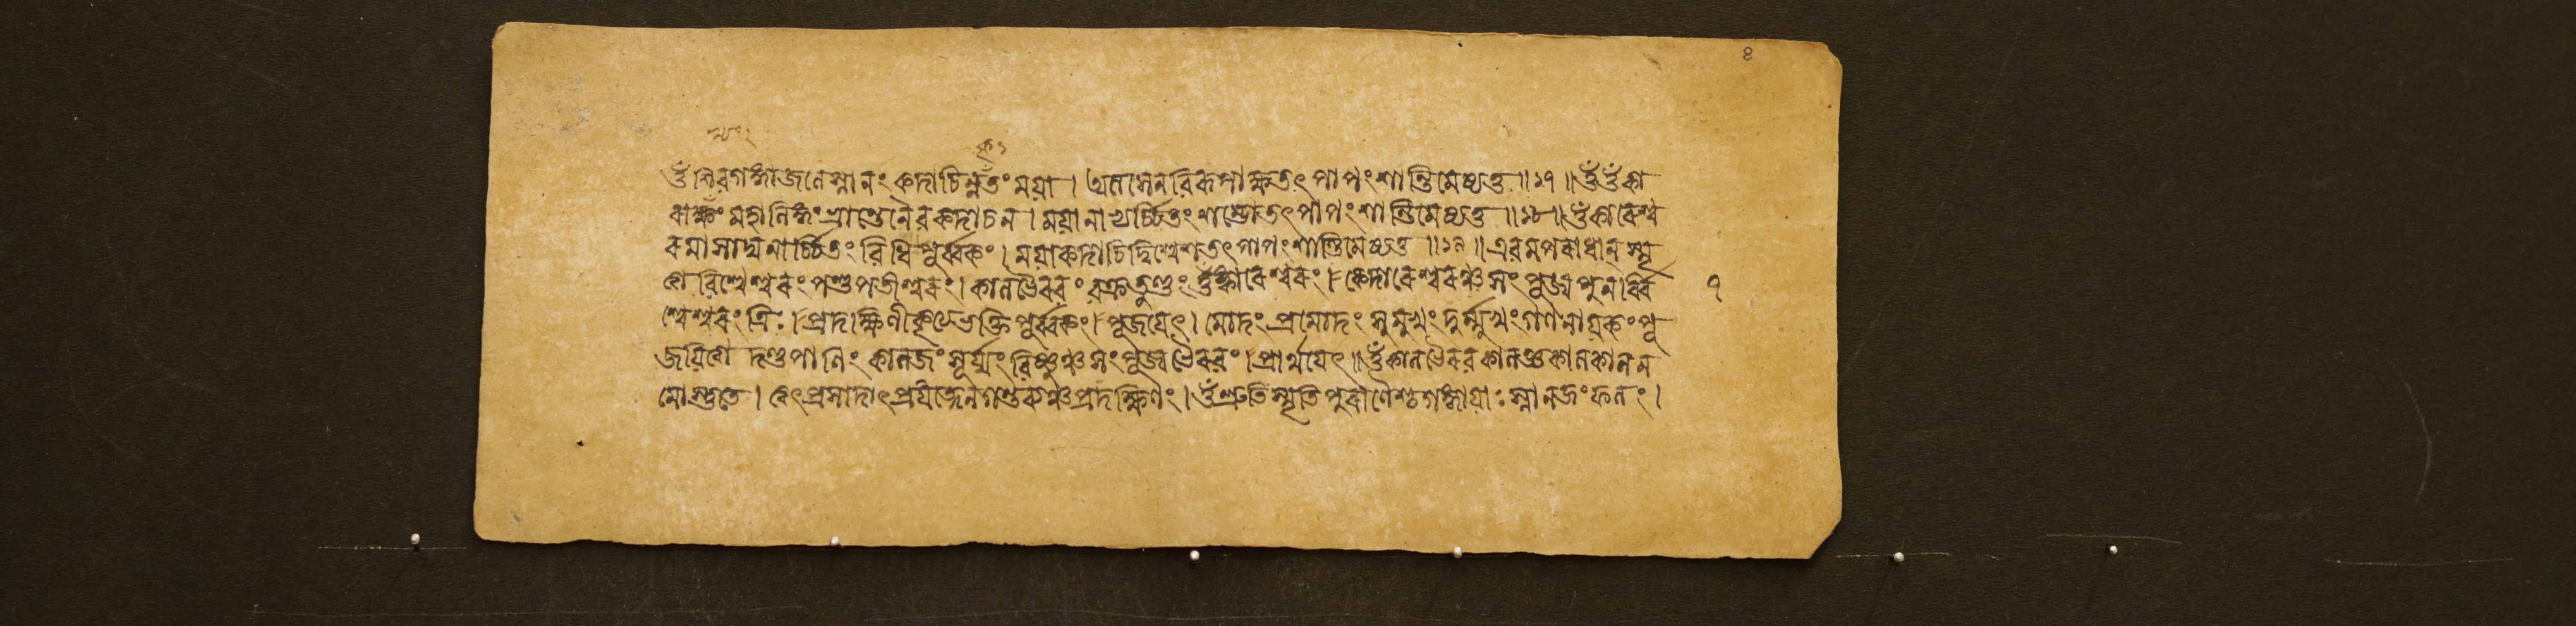 ৪
ওঁ শিবগঙ্গাজলেস্নানং কদাচিন্নকৃতং ময়া । অলসেন বিরূপাক্ষ তৎ পাপং শান্তিমেষ্যতু ॥১৭॥ ওঁ ওঁকা
রাক্ষং মহালিঙ্গং প্রাপ্তেনৈব কদাচন । ময়া নাভ্যর্চ্চিতং শম্ভো তৎপাপং শান্তিমেষ্যতু ॥১৮॥ ওঁকারেশ্ব
রমাসাদ্যনার্চ্চিতং বিধিপূর্ব্বকং । ময়া কদাচিদ্বিশ্বেশ তৎপাপং শান্তিমেষ্যতু ॥১৯॥ এবমপরাধান্ স্মৃ
ত্বা বিশ্বেশ্বরং পশুপতীশ্বরং । কালভৈরবং বক্রতুণ্ডং ওঁকারেশ্বরং । কেদারেশ্বরঞ্চ সংপূজ্য পুনর্ব্বি ৭
শ্বেশ্বরং ত্রিঃ । প্রদক্ষিণীকৃত্য ভক্তিপূর্ব্বকং । পূজয়েৎ । মোদং প্রমোদং সুমুখং দুর্ম্মুখং গণনায়কং পূ
জয়িত্বা দণ্ডপাণিং কালজং সূর্য্যং বিষ্ণুঞ্চ সংপূজ্য ভৈরবং । প্রার্থয়েৎ ॥ ওঁ কালভৈরব কালজ্ঞ কালকাল ন
মোস্তুতে । ত্বৎপ্রসাদাৎ প্রদক্ষিণং । ওঁ শ্রুতিস্মৃতিপুরাণৈশ্চ গঙ্গায়াঃ স্নানজং ফলং ।